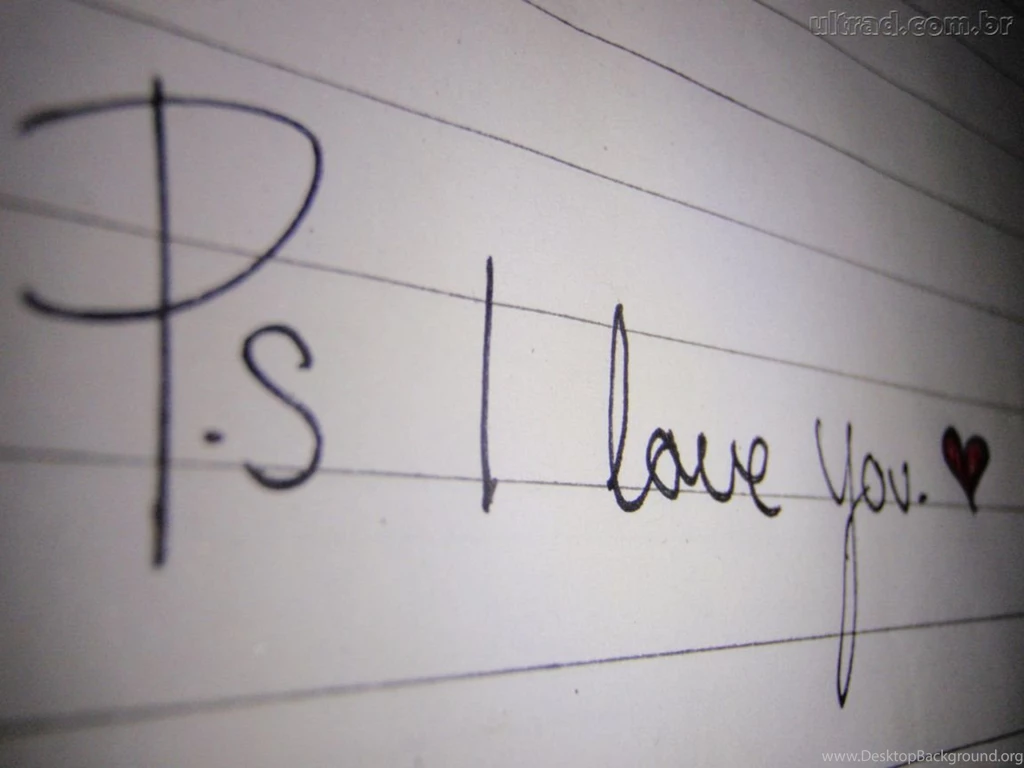 ultrad.com.br
P.s I love you.
www.DesktopBackground.org